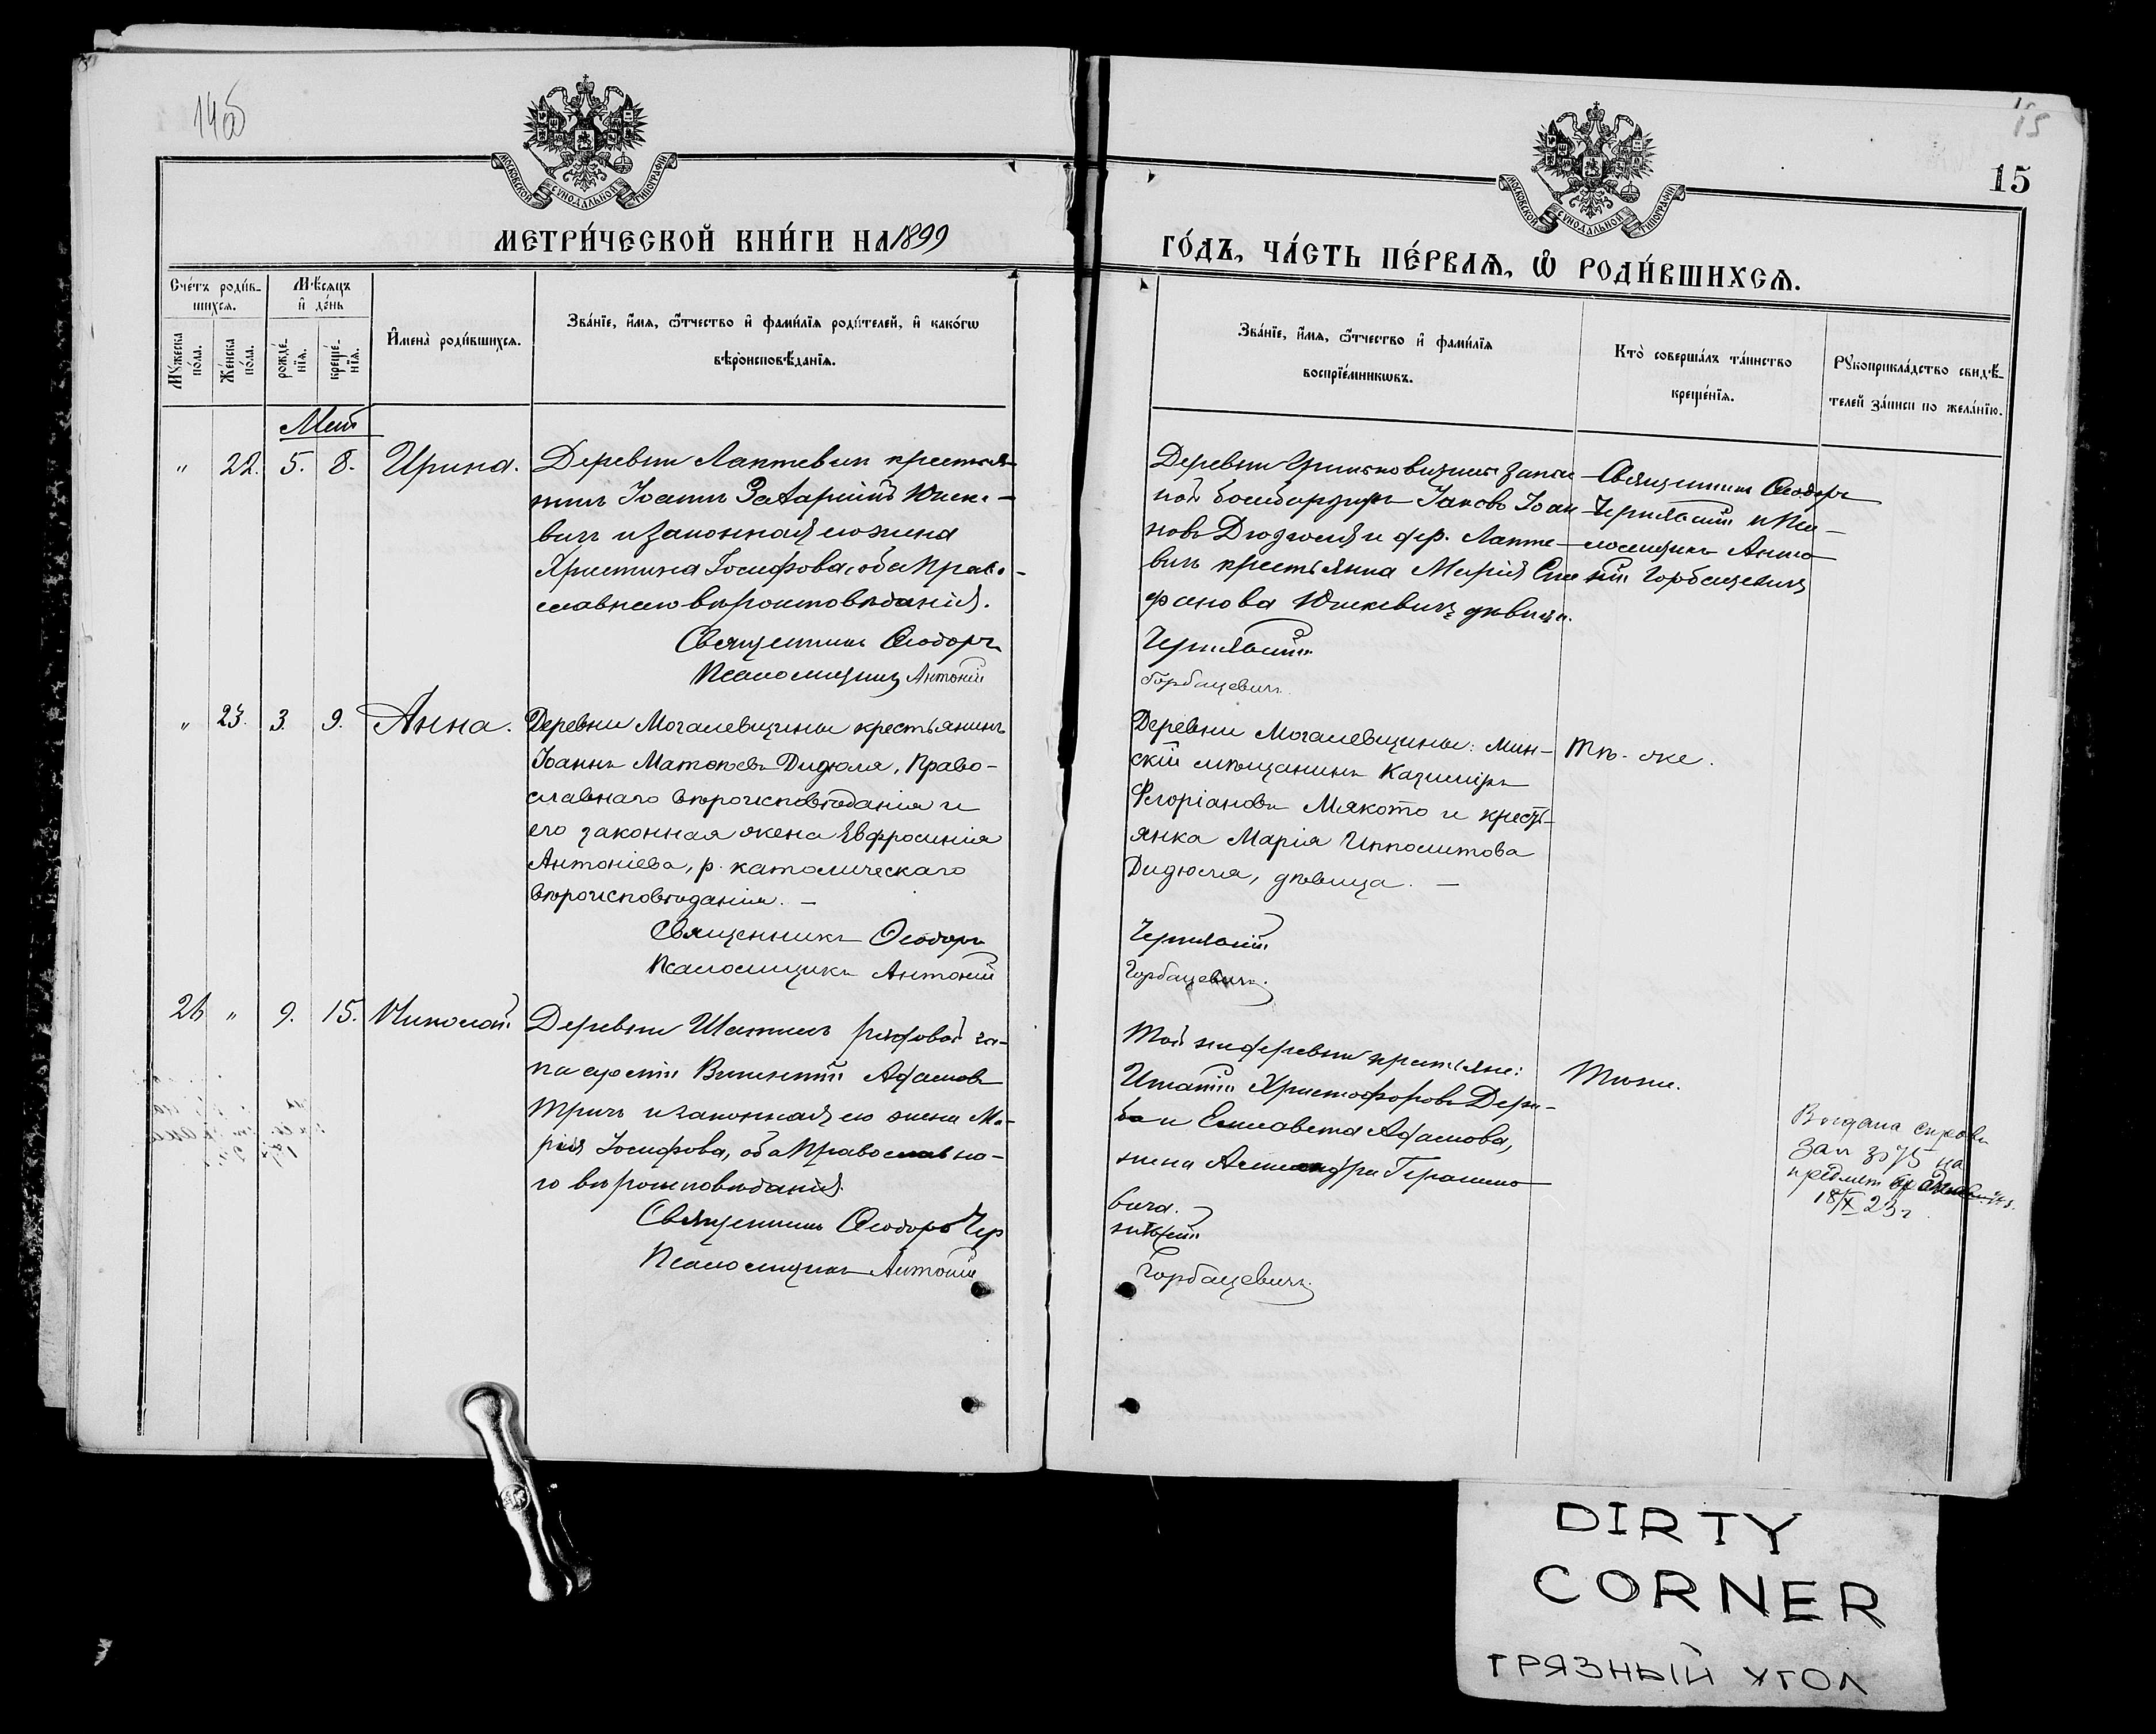 14об
15
15
МОСКОВСКОЙ СѴНОДАЛЬНОЙ ТИПОГРАФІИ
МОСКОВСКОЙ СѴНОДАЛЬНОЙ ТИПОГРАФІИ
МЕТРИ́ЧЕСКОЙ КНИ́ГИ НА 1899
ГО́ДЪ, ЧА́СТЬ ПЕ́РВАѦ, Ѡ҆ РОДИ́ВШИХСѦ.
Сче́тъ роди́в-
шихсѧ.
Мѣ́сяцъ
и҆ де́нь
Мꙋ́жеска
по́ла.
Же́нска
по́ла.
рожде́-
нїѧ.
креще́-
нїѧ.
И҆мена̀ роди́вшихсѧ.
Зва́нїе, и҆́мѧ, ѻ҆́тчество и҆ фами́лїѧ роди́телей, и҆ како́гѡ
вѣроисповѣ́данїѧ.
Зва́нїе, и҆́мѧ, ѻ҆́тчество и҆ фами́лїѧ
воспрїе́мникѡвъ.
Кто̀ соверша́лъ та́инство
креще́нїѧ.
Рꙋкоприкла́дство свидѣ́-
телей за́писи по жела́нїю.
Май
" 22. 5. 8. Ирина.
Деревни Лаптевич крестья-
нин Іоаннъ Захаріинъ Юшке-
вичъ и законная его жена
Христина Іосифова, оба Право-
славнаго вѣроисповѣданія.
Священникъ Ѳеодоръ
Псаломщикъ Антоній
Деревни запас-
ной бомбардиръ Іаковъ Іоан-
новъ и дер. Лапте-
вичъ крестьянка Марія Сте-
фанова Юшкевичъ дѣвица.
Чернявскій
Горбацевичъ.
Священникъ Ѳеодоръ
Чернявскій и Пса-
ломщикъ Анто-
ній Горбацевичъ
" 23. 3. 9. Анна.
Деревни Могалевщины крестьянинъ
Іоаннъ Матѳѣевъ Дидюля, Право-
славнаго вѣроисповѣданія и
его законная жена Евфросинія
Антоніева, р. католическаго
вѣроисповѣданія. —
Священникъ Ѳеодоръ
Псаломщикъ Антоній
Деревни Могалевщины: мин-
скій мѣщанинъ Казиміръ
Флоріановъ Мякото и кресть-
янка Марія Ипполитова
Дидюля, дѣвица. —
Чернявскій
Горбацевичъ.
Тѣ-же.
26 " 9. 15. Николай.
Деревни рядовой за-
паса арміи Викентій Адамовъ
и законная его жена Ма-
рія Іосифова, оба Православна-
го вѣроисповѣданія.
Священникъ Ѳеодоръ Чер
Псаломщикъ Антоній
Той же деревни крестьяне:
Игнатій Христофоровъ Дерн-
ба и Елисавета Адамова,
жена Александра Герасимо-
вича.
нявскій
Горбацевичъ.
Тѣже.
Выдана справка
за № 3075 на
предмет
18/X 23 г.
DIRTY
CORNER
ГРЯЗНЫЙ УГОЛ